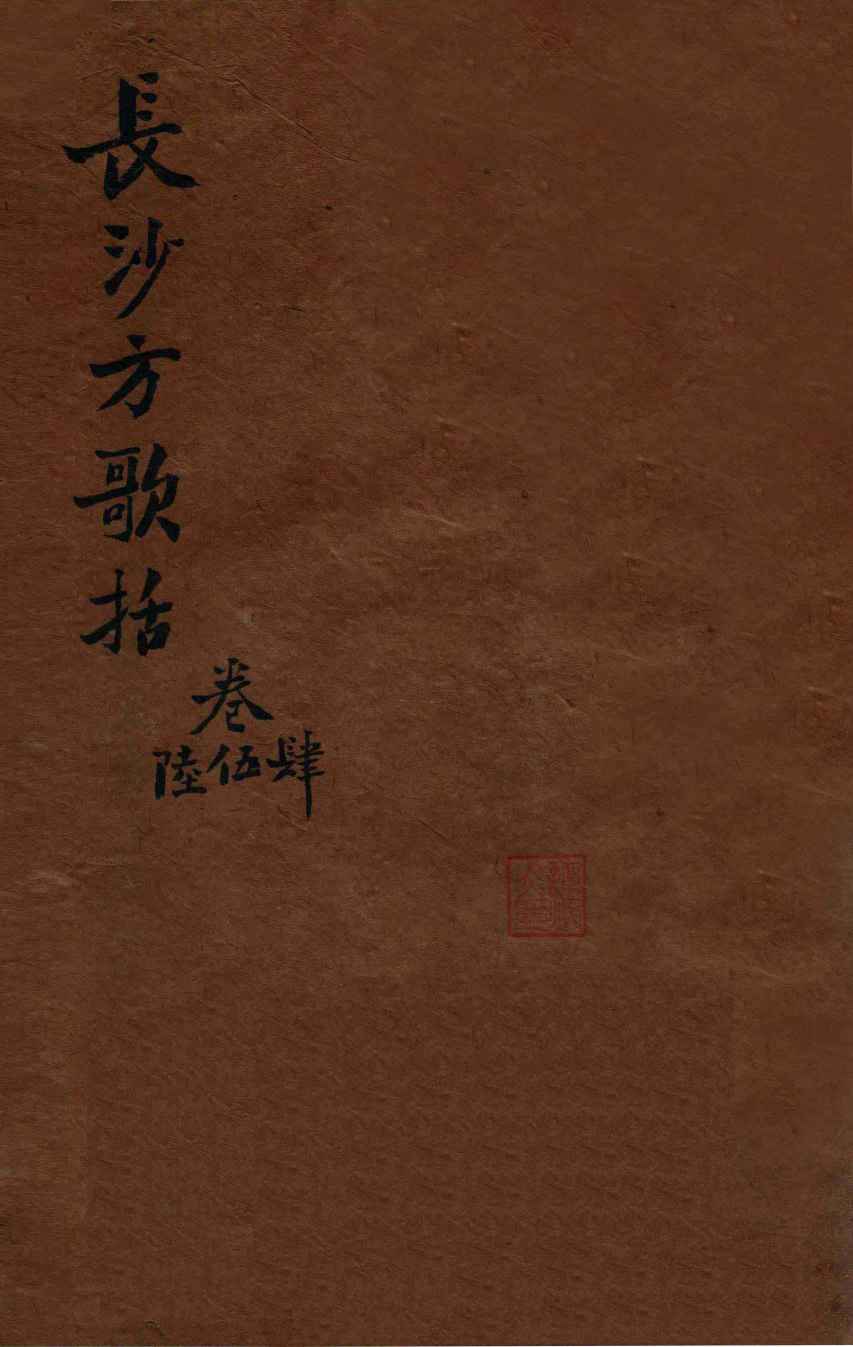 長沙方歌括
卷
肆伍陸